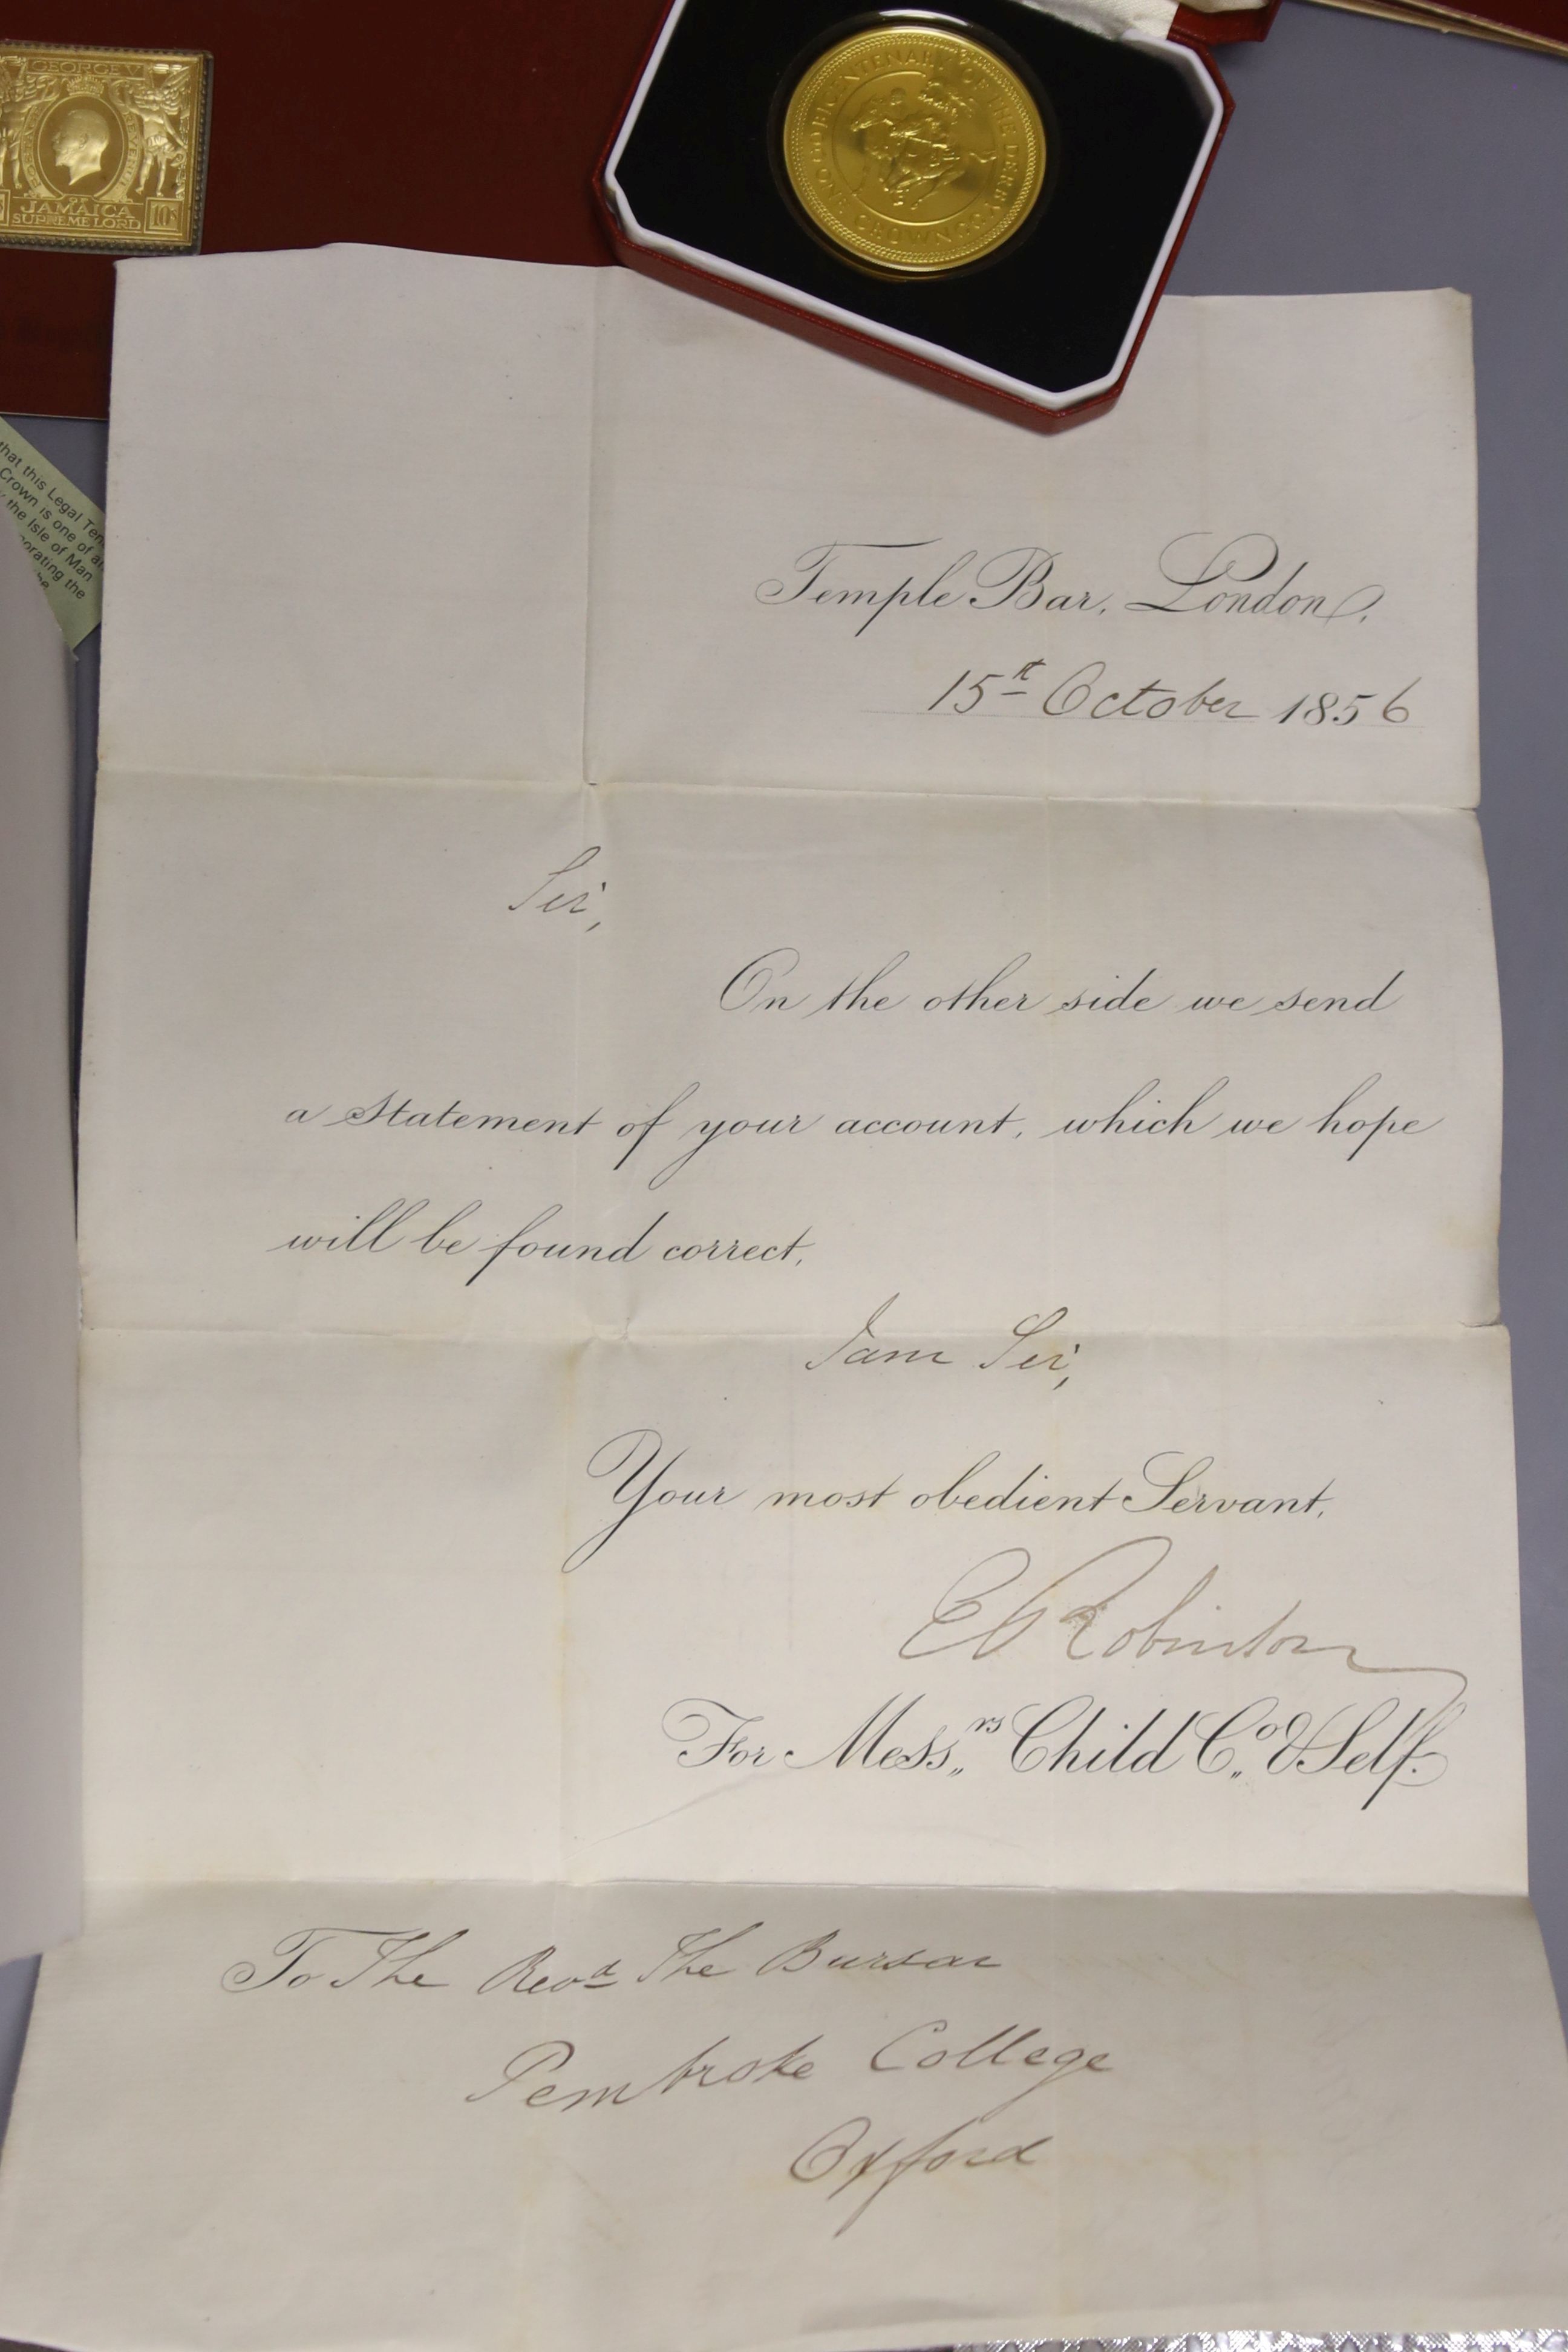 GEORGE V
JAMAICA
SUPREME LORD
10s
BICENTENARY OF THE DERBY
ONE CROWN
that this Legal Ten
Crown is one of a
the Isle of Man
orating the
he
Temple Bar, London,
15th October 1856
Sir,
On the other side we send
a statement of your account, which we hope
will be found correct,
I am Sir,
Your most obedient Servant,
E Robinson
For Messrs Child Co & Self.
To The Revd The Bursar
Pembroke College
Oxford